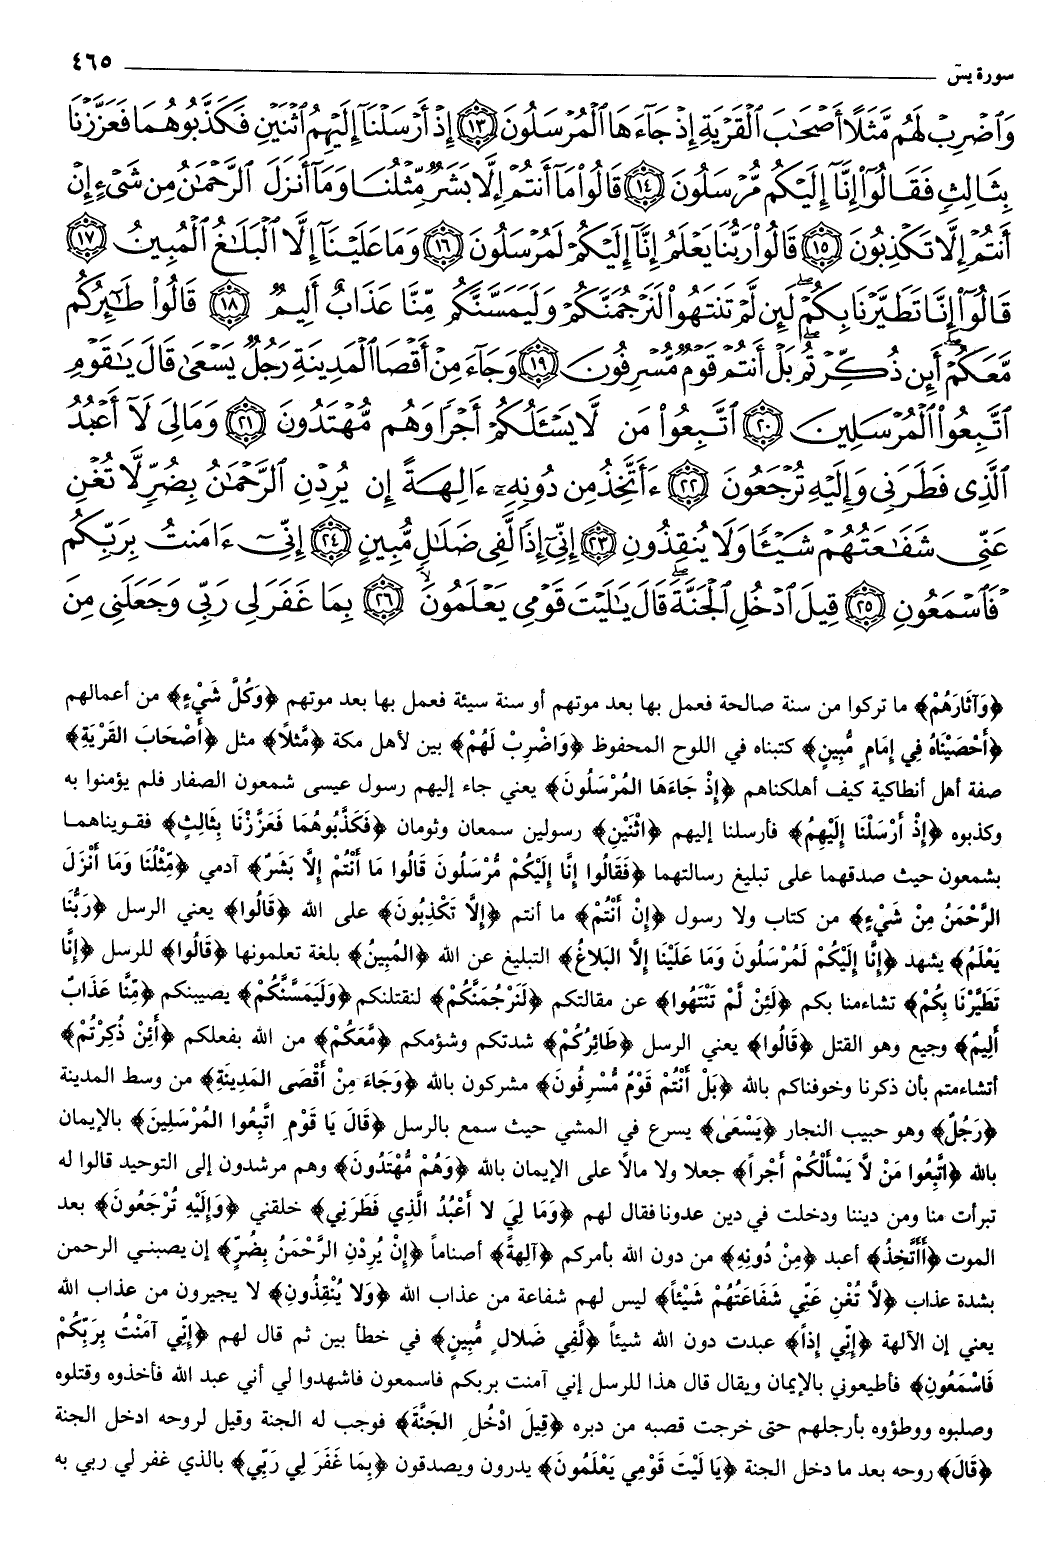 سورة يسۤ ٤٦٥
وَٱضْرِبْ لَهُم مَّثَلًا أَصْحَٰبَ ٱلْقَرْيَةِ إِذْ جَآءَهَا ٱلْمُرْسَلُونَ ١٣ إِذْ أَرْسَلْنَآ إِلَيْهِمُ ٱثْنَيْنِ فَكَذَّبُوهُمَا فَعَزَّزْنَا
بِثَالِثٍ فَقَالُوٓا۟ إِنَّآ إِلَيْكُم مُّرْسَلُونَ ١٤ قَالُوا۟ مَآ أَنتُمْ إِلَّا بَشَرٌ مِّثْلُنَا وَمَآ أَنزَلَ ٱلرَّحْمَٰنُ مِن شَىْءٍ إِنْ
أَنتُمْ إِلَّا تَكْذِبُونَ ١٥ قَالُوا۟ رَبُّنَا يَعْلَمُ إِنَّآ إِلَيْكُمْ لَمُرْسَلُونَ ١٦ وَمَا عَلَيْنَآ إِلَّا ٱلْبَلَٰغُ ٱلْمُبِينُ ١٧
قَالُوٓا۟ إِنَّا تَطَيَّرْنَا بِكُمْ ۖ لَئِن لَّمْ تَنتَهُوا۟ لَنَرْجُمَنَّكُمْ وَلَيَمَسَّنَّكُم مِّنَّا عَذَابٌ أَلِيمٌ ١٨ قَالُوا۟ طَٰٓئِرُكُم
مَّعَكُمْ ۚ أَئِن ذُكِّرْتُم ۚ بَلْ أَنتُمْ قَوْمٌ مُّسْرِفُونَ ١٩ وَجَآءَ مِنْ أَقْصَا ٱلْمَدِينَةِ رَجُلٌ يَسْعَىٰ قَالَ يَٰقَوْمِ
ٱتَّبِعُوا۟ ٱلْمُرْسَلِينَ ٢٠ ٱتَّبِعُوا۟ مَن لَّا يَسْـَٔلُكُمْ أَجْرًا وَهُم مُّهْتَدُونَ ٢١ وَمَا لِىَ لَآ أَعْبُدُ
ٱلَّذِى فَطَرَنِى وَإِلَيْهِ تُرْجَعُونَ ٢٢ ءَأَتَّخِذُ مِن دُونِهِۦٓ ءَالِهَةً إِن يُرِدْنِ ٱلرَّحْمَٰنُ بِضُرٍّ لَّا تُغْنِ
عَنِّى شَفَٰعَتُهُمْ شَيْـًٔا وَلَا يُنقِذُونِ ٢٣ إِنِّىٓ إِذًا لَّفِى ضَلَٰلٍ مُّبِينٍ ٢٤ إِنِّىٓ ءَامَنتُ بِرَبِّكُمْ
فَٱسْمَعُونِ ٢٥ قِيلَ ٱدْخُلِ ٱلْجَنَّةَ ۖ قَالَ يَٰلَيْتَ قَوْمِى يَعْلَمُونَ ٢٦ بِمَا غَفَرَ لِى رَبِّى وَجَعَلَنِى مِنَ
﴿وَآثَارَهُمْ﴾ ما تركوا من سنة صالحة فعمل بها بعد موتهم أو سنة سيئة فعمل بها بعد موتهم ﴿وَكُلَّ شَيْءٍ﴾ من أعمالهم
﴿أَحْصَيْنَاهُ فِي إِمَامٍ مُّبِينٍ﴾ كتبناه في اللوح المحفوظ ﴿وَاضْرِبْ لَهُمْ﴾ بين لأهل مكة ﴿مَّثَلاً﴾ مثل ﴿أَصْحَابَ القَرْيَةِ﴾
صفة أهل أنطاكية كيف أهلكناهم ﴿إِذْ جَاءَهَا المُرْسَلُونَ﴾ يعني جاء إليهم رسول عيسى شمعون الصفار فلم يؤمنوا به
وكذبوه ﴿إِذْ أَرْسَلْنَا إِلَيْهِمُ﴾ فأرسلنا إليهم ﴿اثْنَيْنِ﴾ رسولين سمعان وثومان ﴿فَكَذَّبُوهُمَا فَعَزَّزْنَا بِثَالِثٍ﴾ فقويناهما
بشمعون حيث صدقهما على تبليغ رسالتهما ﴿فَقَالُوا إِنَّا إِلَيْكُمْ مُّرْسَلُونَ قَالُوا مَا أَنْتُمْ إِلاَّ بَشَرٌ﴾ آدمي ﴿مِّثْلُنَا وَمَا أَنْزَلَ
الرَّحْمَنُ مِنْ شَيْءٍ﴾ من كتاب ولا رسول ﴿إِنْ أَنْتُمْ﴾ ما أنتم ﴿إِلاَّ تَكْذِبُونَ﴾ على الله ﴿قَالُوا﴾ يعني الرسل ﴿رَبُّنَا
يَعْلَمُ﴾ يشهد ﴿إِنَّا إِلَيْكُمْ لَمُرْسَلُونَ وَمَا عَلَيْنَا إِلاَّ البَلاَغُ﴾ التبليغ عن الله ﴿المُبِينُ﴾ بلغة تعلمونها ﴿قَالُوا﴾ للرسل ﴿إِنَّا
تَطَيَّرْنَا بِكُمْ﴾ تشاءمنا بكم ﴿لَئِنْ لَّمْ تَنْتَهُوا﴾ عن مقالتكم ﴿لَنَرْجُمَنَّكُمْ﴾ لنقتلنكم ﴿وَلَيَمَسَّنَّكُمْ﴾ يصيبنكم ﴿مِّنَّا عَذَابٌ
أَلِيمٌ﴾ وجيع وهو القتل ﴿قَالُوا﴾ يعني الرسل ﴿طَائِرُكُمْ﴾ شدتكم وشؤمكم ﴿مَّعَكُمْ﴾ من الله بفعلكم ﴿أَئِنْ ذُكِرْتُمْ﴾
أتشاءمتم بأن ذكرنا وخوفناكم بالله ﴿بَلْ أَنْتُمْ قَوْمٌ مُّسْرِفُونَ﴾ مشركون بالله ﴿وَجَاءَ مِنْ أَقْصَى المَدِينَةِ﴾ من وسط المدينة
﴿رَجُلٌ﴾ وهو حبيب النجار ﴿يَسْعَىٰ﴾ يسرع في المشي حيث سمع بالرسل ﴿قَالَ يَا قَوْمِ اتَّبِعُوا المُرْسَلِينَ﴾ بالإيمان
بالله ﴿اتَّبِعُوا مَنْ لاَّ يَسْأَلُكُمْ أَجْراً﴾ جعلا ولا مالاً على الإيمان بالله ﴿وَهُمْ مُّهْتَدُونَ﴾ وهم مرشدون إلى التوحيد قالوا له
تبرأت منا ومن ديننا ودخلت في دين عدونا فقال لهم ﴿وَمَا لِيَ لا أَعْبُدُ الَّذِي فَطَرَنِي﴾ خلقني ﴿وَإِلَيْهِ تُرْجَعُونَ﴾ بعد
الموت ﴿أَأَتَّخِذُ﴾ أعبد ﴿مِنْ دُونِهِ﴾ من دون الله بأمركم ﴿آلِهَةً﴾ أصناماً ﴿إِنْ يُرِدْنِ الرَّحْمَنُ بِضُرٍّ﴾ إن يصبني الرحمن
بشدة عذاب ﴿لاَّ تُغْنِ عَنِّي شَفَاعَتُهُمْ شَيْئاً﴾ ليس لهم شفاعة من عذاب الله ﴿وَلا يُنْقِذُونِ﴾ لا يجيرون من عذاب الله
يعني إن الآلهة ﴿إِنِّي إِذاً﴾ عبدت دون الله شيئاً ﴿لَّفِي ضَلالٍ مُّبِينٍ﴾ في خطأ بين ثم قال لهم ﴿إِنِّي آمَنْتُ بِرَبِّكُمْ
فَاسْمَعُونِ﴾ فأطيعوني بالإيمان ويقال قال هذا للرسل إني آمنت بربكم فاسمعون فاشهدوا لي أني عبد الله فأخذوه وقتلوه
وصلبوه ووطؤوه بأرجلهم حتى خرجت قصبه من دبره ﴿قِيلَ ادْخُلِ الجَنَّةَ﴾ فوجب له الجنة وقيل لروحه ادخل الجنة
﴿قَالَ﴾ روحه بعد ما دخل الجنة ﴿يَا لَيْتَ قَوْمِي يَعْلَمُونَ﴾ يدرون ويصدقون ﴿بِمَا غَفَرَ لِي رَبِّي﴾ بالذي غفر لي ربي به